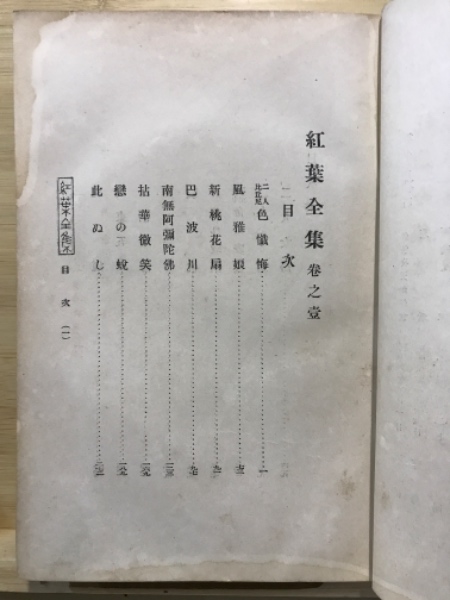 紅葉全集 卷之壹
目次
二人比丘尼 色懺悔 一
風雅娘
新桃花扇
巴波川
南無阿彌陀佛
拈華微笑
戀の蛻
此ぬし
紅葉全集 目次 (一)